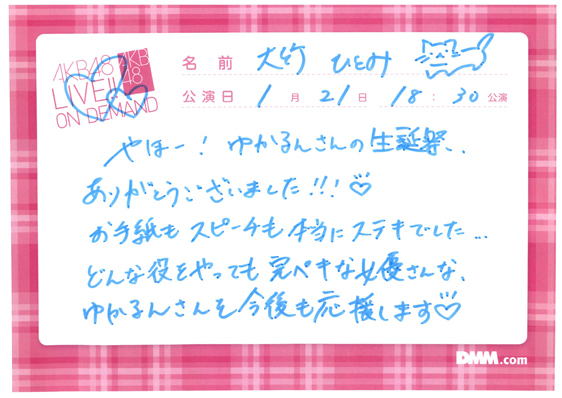 AKB48
LIVE!!
ON DEMAND
AKB
48
名前 大竹 ひとみ
公演日 1月21日 18:30公演
やほー!ゆかるんさんの生誕祭、
ありがとうございました!!!♡
お手紙もスピーチも本当にステキでした...
どんな役をやっても完ペキな女優さんな、
ゆかるんさんを今後も応援します♡
DMM.com